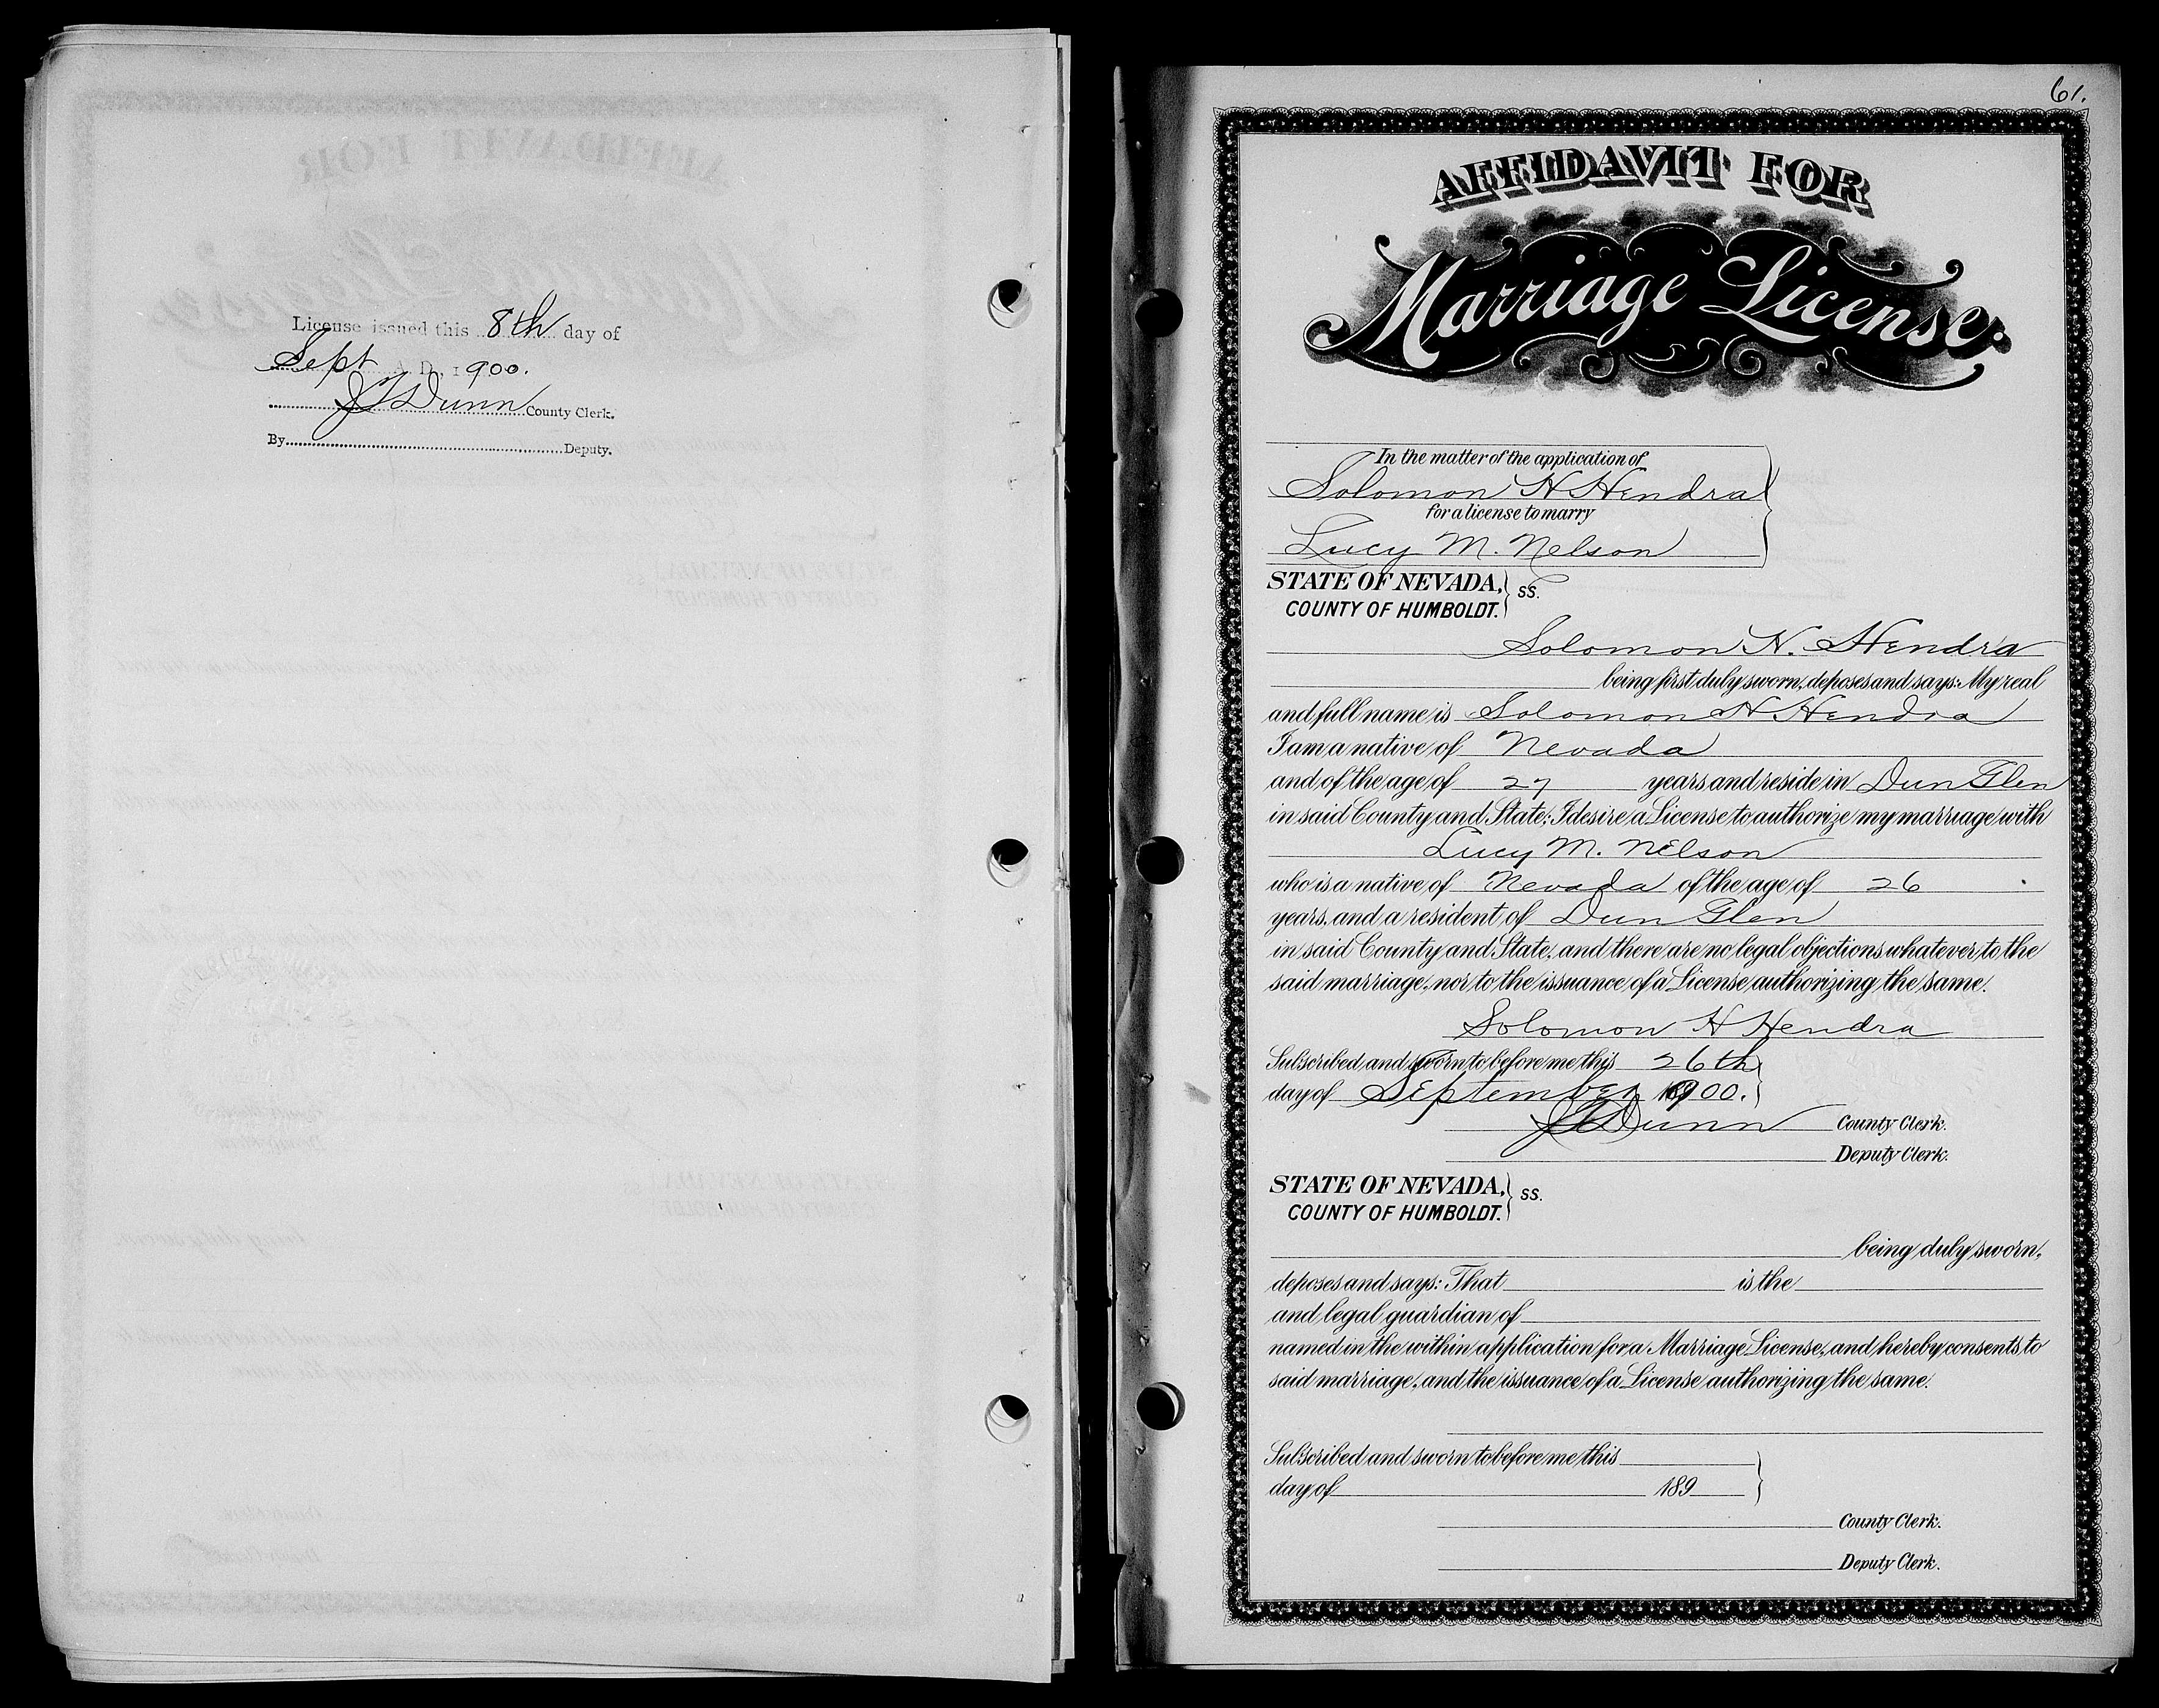 License issued this 8th day of
Sept A.D. 1900.
J T Dunn County Clerk.
By Deputy.
61.
AFFIDAVIT FOR
Marriage License.
In the matter of the application of
Solomon H Hendra
for a license to marry
Lucy M. Nelson
STATE OF NEVADA, } ss.
COUNTY OF HUMBOLDT.
Solomon H. Hendra
being first duly sworn, deposes and says: My real
and full name is Solomon H Hendra
I am a native of Nevada
and of the age of 27 years and reside in Dun Glen
in said County and State; I desire a License to authorize my marriage with
Lucy M. Nelson
who is a native of Nevada of the age of 26
years, and a resident of Dun Glen
in said County and State, and there are no legal objections whatever to the
said marriage, nor to the issuance of a License authorizing the same.
Solomon H Hendra
Subscribed and sworn to before me this 26th
day of September 1900.
J T Dunn County Clerk.
Deputy Clerk.
STATE OF NEVADA, } ss.
COUNTY OF HUMBOLDT.
being duly sworn,
deposes and says: That is the
and legal guardian of
named in the within application for a Marriage License, and hereby consents to
said marriage, and the issuance of a License authorizing the same.
Subscribed and sworn to before me this
day of 189
County Clerk.
Deputy Clerk.